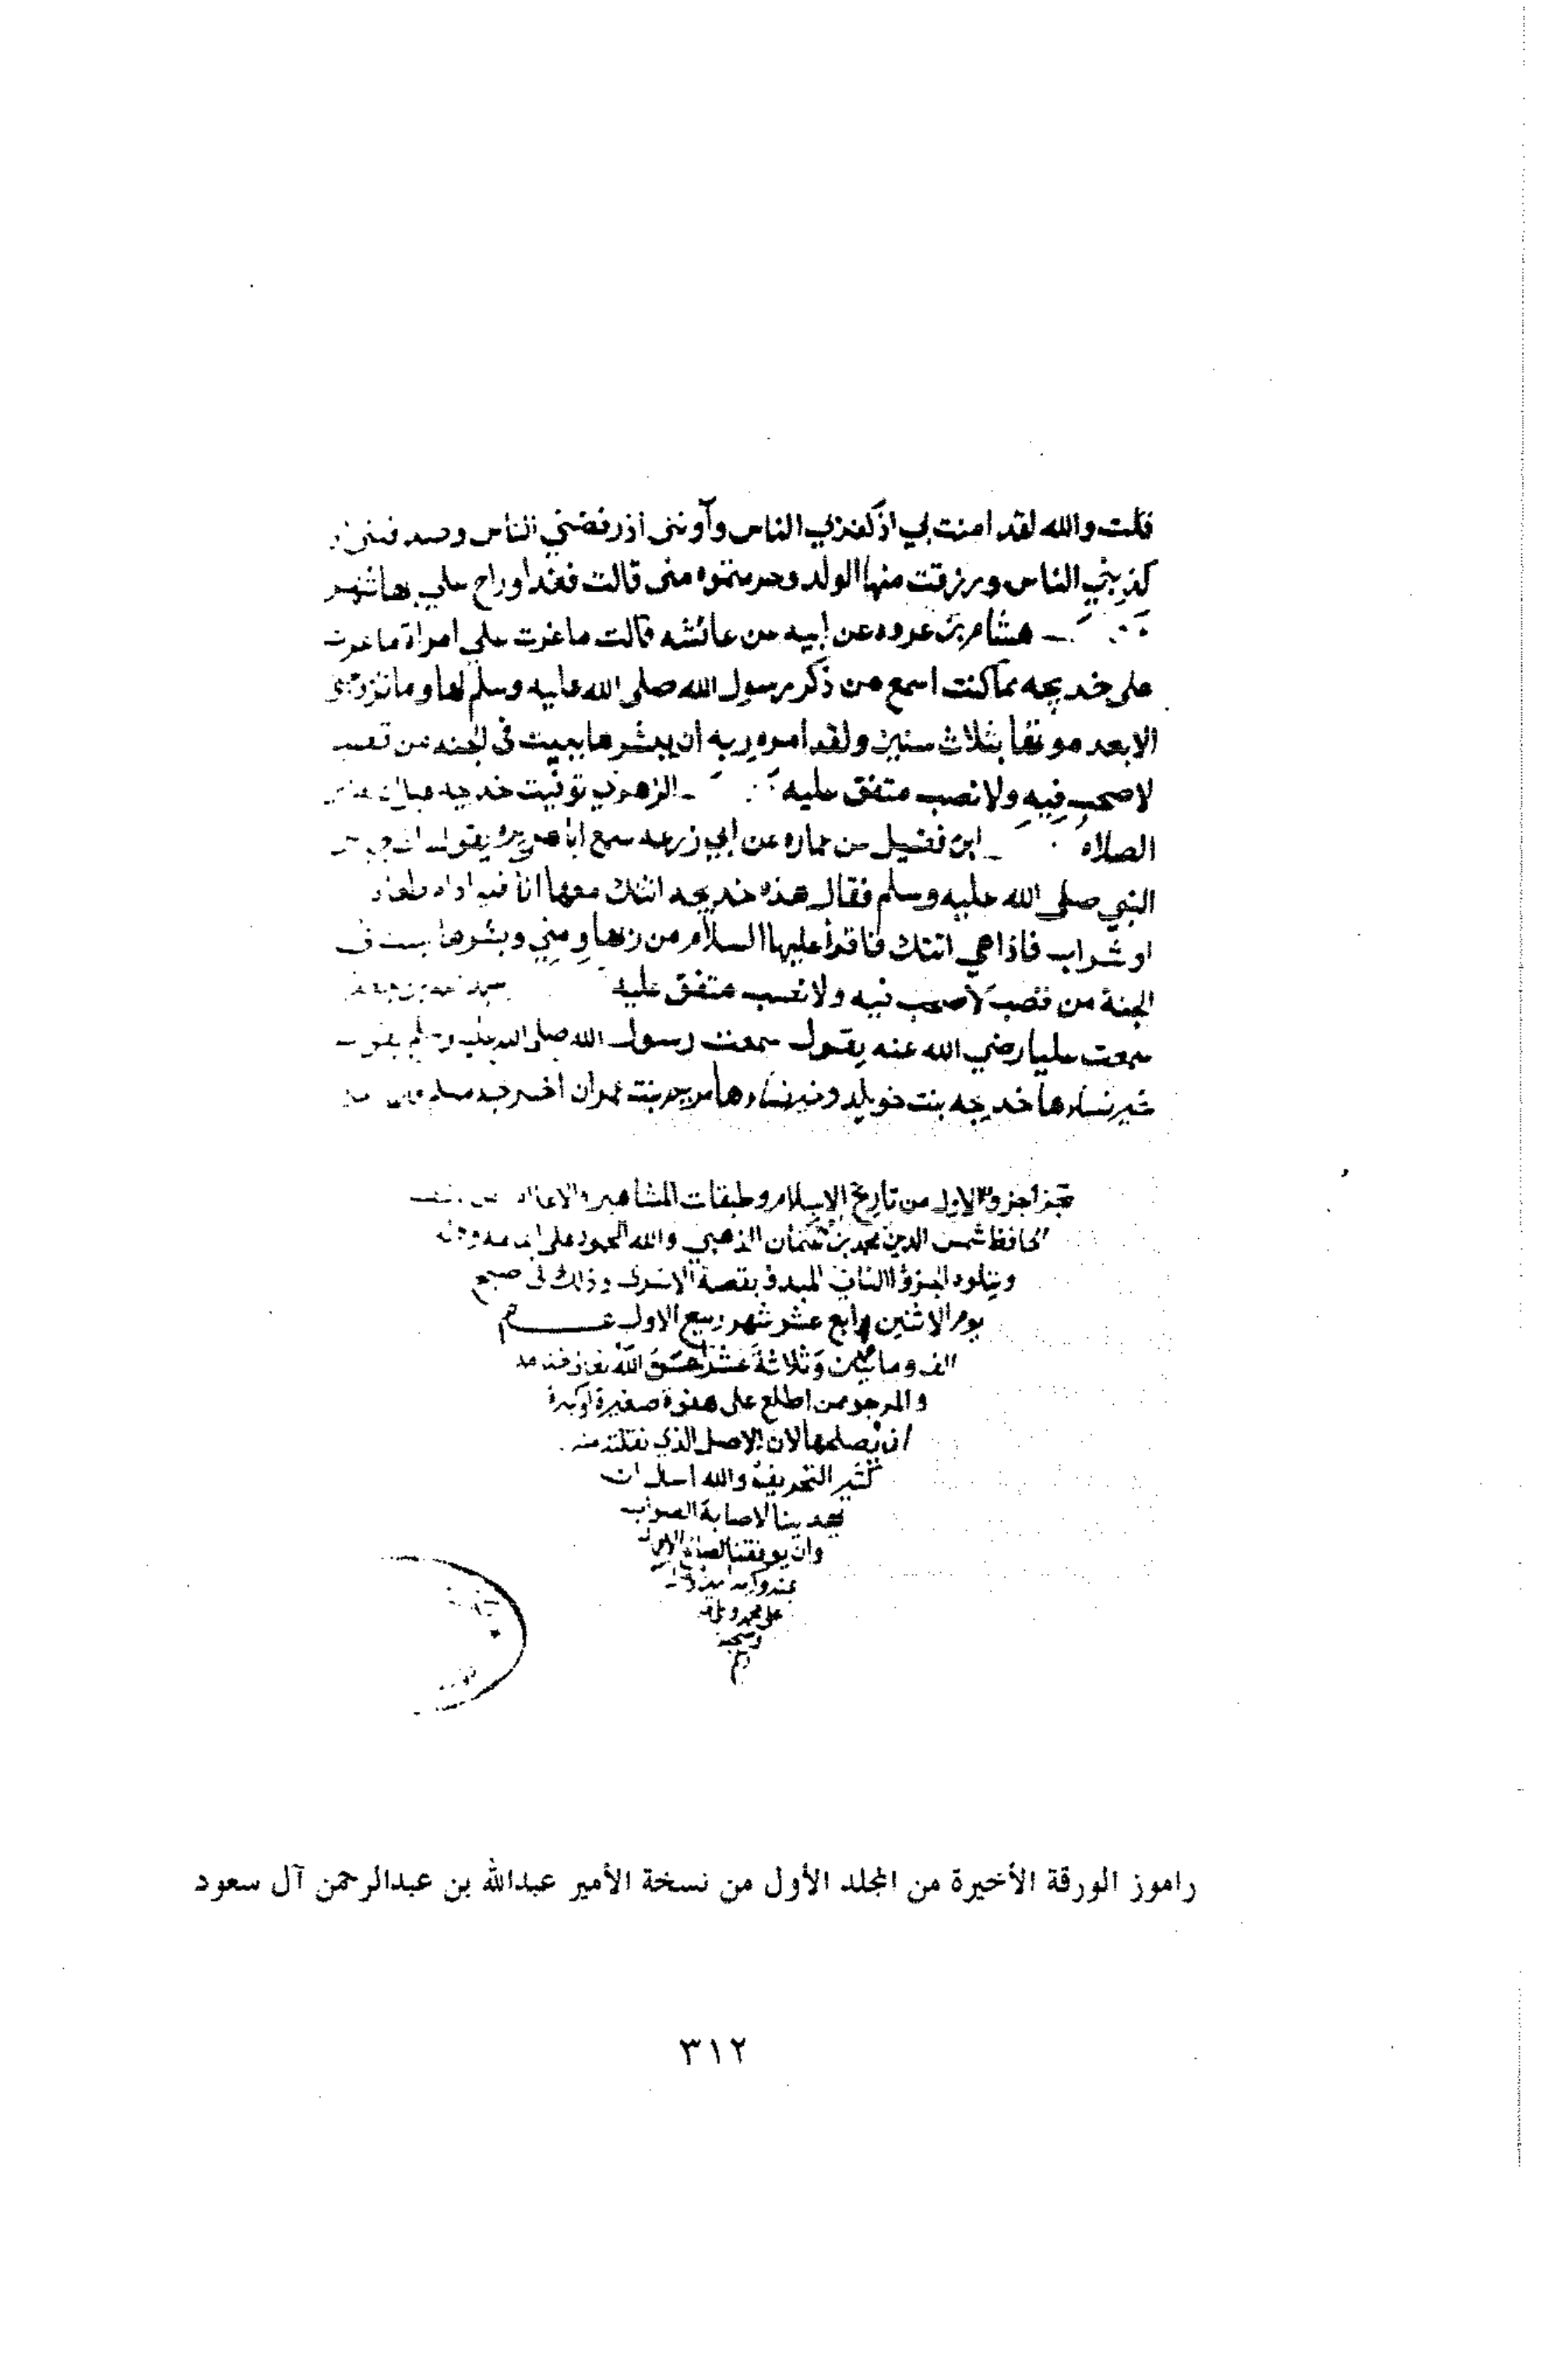 قلت والله لقد امنت بي اذ كفرني الناس وآوتني اذ رفضني الناس وصدقتني
كذبني الناس ورزقت منها الولد وحرمتموه مني قالت فغدا وراح علي بها شهر
هشام بن عروه عن ابيه عن عائشه قالت ما غرت علي امراة ما غرت
على خديجه مما كنت اسمع من ذكر رسول الله صلى الله عليه وسلم لها وما تزوجني
الا بعد موتها بثلاث سنين ولقد امره ربه ان يبشرها ببيت في الجنه من قصب
لا صخب فيه ولا نصب متفق عليه الزهري توفيت خديجه قبل ان
الصلاه ابن فضيل عن عماره عن ابي زرعه سمع ابا هريره يقول
النبي صلى الله عليه وسلم فقال هذه خديجه اتتك معها انا فيه ادام طعام
او شراب فاذا هي اتتك فاقرأ عليها السلام من ربها ومني وبشرها ببيت في
الجنة من قصب لا صخب فيه ولا نصب متفق عليه
سمعت عليا رضي الله عنه يقول سمعت رسول الله صلى الله عليه وسلم يقول
خير نساءها خديجه بنت خويلد وخير نساءها مريم بنت عمران اخرجه مسلم
نجز الجزو الاول من تاريخ الاسلام وطبقات المشاهير والاعلام
الحافظ شمس الدين محمد بن عثمان الذهبي والله المحمود على
ويتلوه الجزؤ الثاني المبدؤ بقصة الاسرى وذلك في صبح
يوم الاثنين رابع عشر شهر ربيع الاول عـــام
الف ومايتين وثلاثة عشر احسن الله
والمرجو ممن اطلع على هفوة صغيرة او كبيرة
ان يصلحها لان الاصل الذي نقلته منه
كثير التحريف والله اسال ان
يهدينا لاصابة الصواب
وان يوفقنا
على محمد وآله
وصحبه
راموز الورقة الأخيرة من المجلد الأول من نسخة الأمير عبدالله بن عبدالرحمن آل سعود
٣١٢